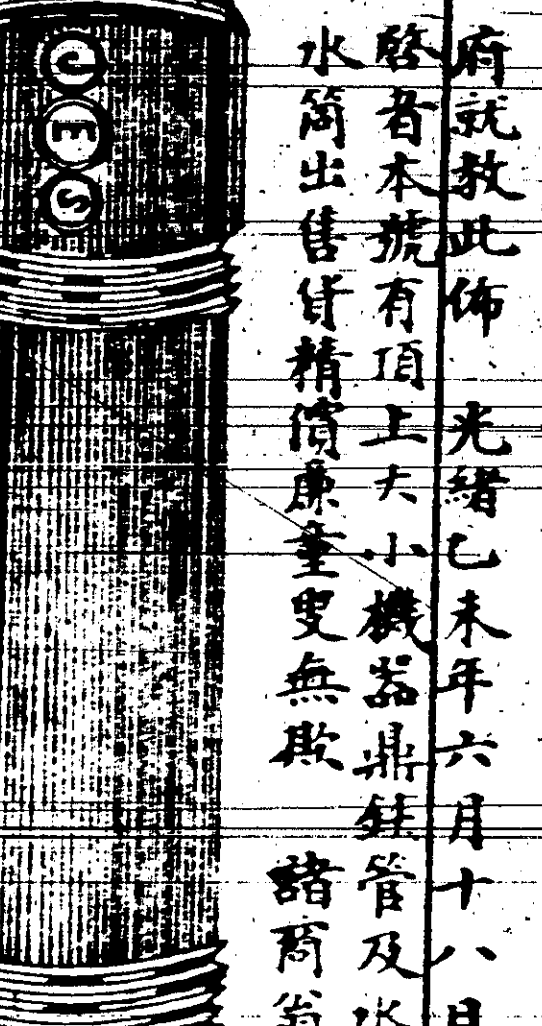 府就教此佈 光緒乙未年六月十八日
啓者本號有頂上大小機器鼎鉎管及水
水筒出售貨精價廉童叟無欺 諸商翁
C E S